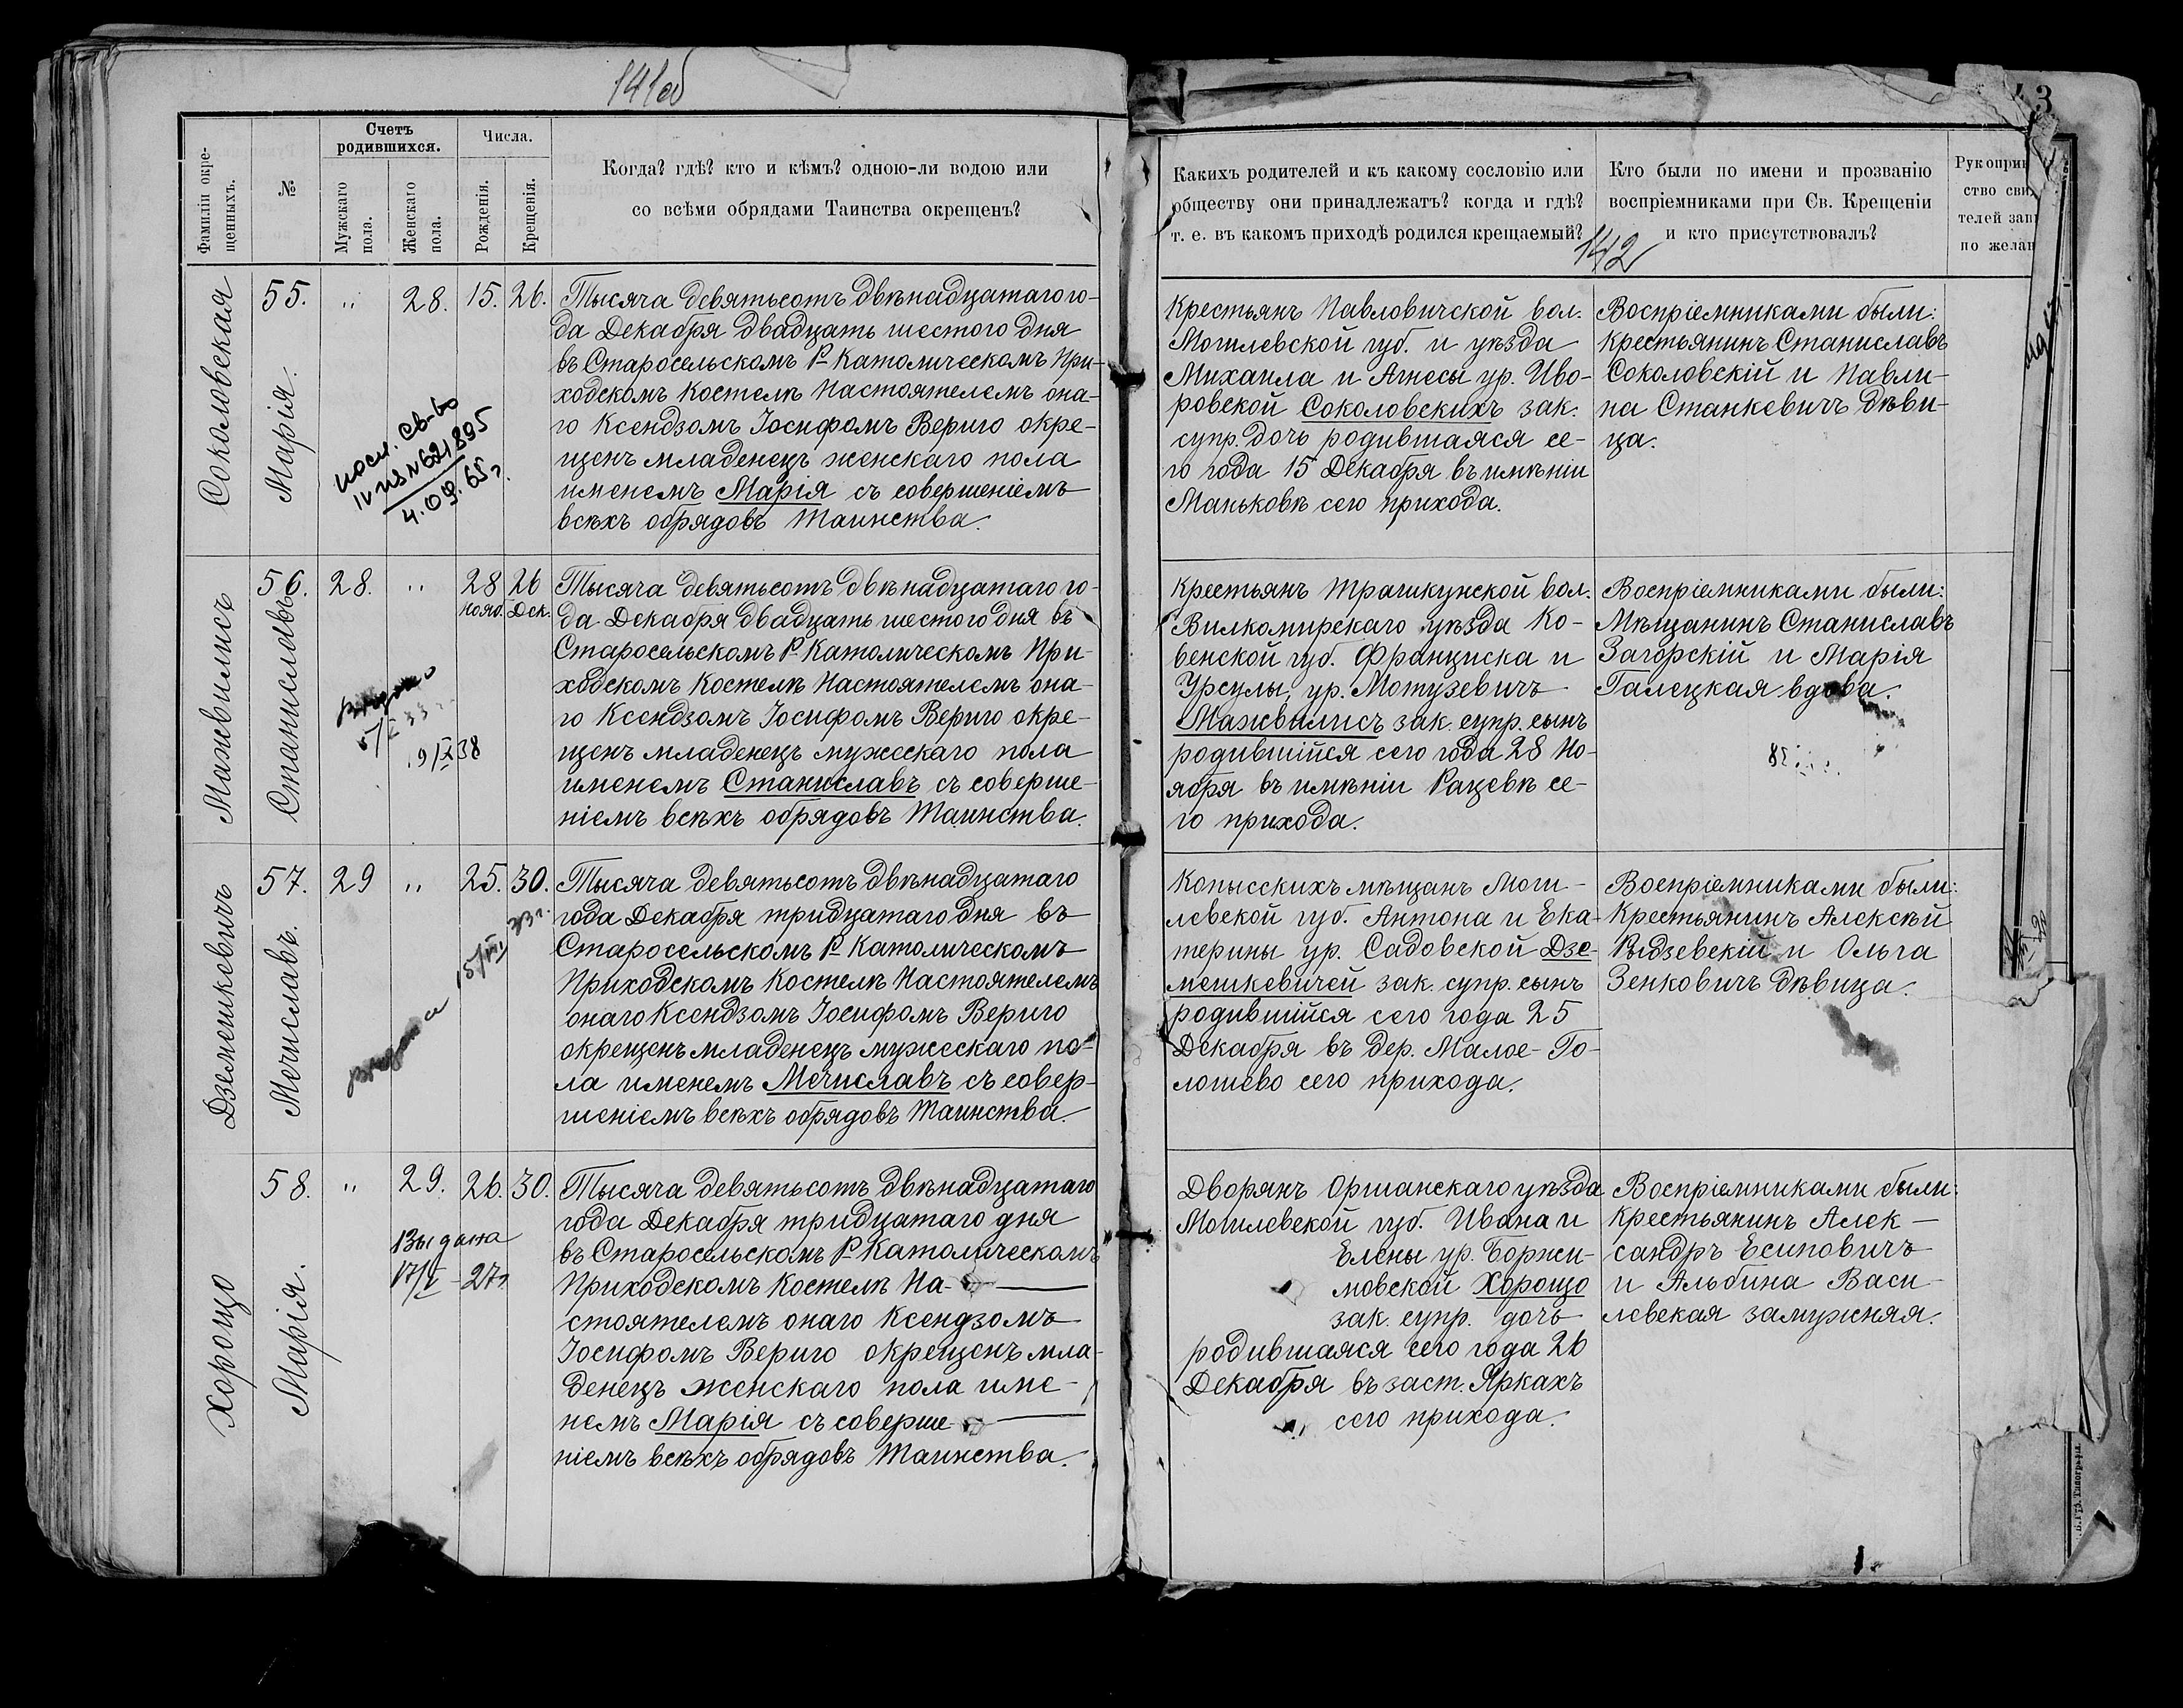 141об
Фамиліи окре-
щенныхъ.
№
Счетъ
родившихся.
Мужскаго
пола.
Женскаго
пола.
Числа.
Рожденія.
Крещенія.
Когда? гдѣ? кто и кѣмъ? одною-ли водою или
со всѣми обрядами Таинства окрещенъ?
Соколовская
Марія.
55.
"
28.
15.
26.
Тысяча девятьсотъ двѣнадцатаго го-
да Декабря двадцать шестого дня
въ Старосельскомъ Р-Католическомъ При-
ходскомъ Костелѣ Настоятелемъ она-
го Ксендзомъ Іосифомъ Вериго окре-
щенъ младенецъ женскаго пола
именемъ Марія съ совершеніемъ
всѣхъ обрядовъ Таинства.
св-во
№621895
4.09.65г.
Мажвилисъ
Станиславъ
56.
28.
"
28
Нояб.
26
Дек.
Тысяча девятьсотъ двѣнадцатаго го-
да Декабря двадцать шестого дня въ
Старосельскомъ Р-Католическомъ При-
ходскомъ Костелѣ Настоятелемъ она-
го Ксендзомъ Іосифомъ Вериго окре-
щенъ младенецъ мужескаго пола
именемъ Станиславъ съ соверше-
ніемъ всѣхъ обрядовъ Таинства.
9/X 38
Дземешкевичъ
Мечиславъ.
57.
29
"
25.
30.
Тысяча девятьсотъ двѣнадцатаго
года Декабря тридцатаго дня въ
Старосельскомъ Р-Католическомъ
Приходскомъ Костелѣ Настоятелемъ
онаго Ксендзомъ Іосифомъ Вериго
окрещенъ младенецъ мужескаго по-
ла именемъ Мечиславъ съ совер-
шеніемъ всѣхъ обрядовъ Таинства.
Выдана
33г.
Хорощо
Марія.
58.
"
29.
26.
30.
Тысяча девятьсотъ двѣнадцатаго
года Декабря тридцатаго дня
въ Старосельскомъ Р-Католическомъ
Приходскомъ Костелѣ На-
стоятелемъ онаго Ксендзомъ
Іосифомъ Вериго окрещенъ мла-
денецъ женскаго пола име-
немъ Марія съ соверше-
ніемъ всѣхъ обрядовъ Таинства.
Выдана
17/V - 27г.
3
Какихъ родителей и къ какому сословію или
обществу они принадлежатъ? когда и гдѣ?
т. е. въ какомъ приходѣ родился крещаемый?
142
Кто были по имени и прозванію
воспріемниками при Св. Крещеніи
и кто присутствовалъ?
Рукоприк
ство сви
телей зап
по желан
Крестьянъ Павловичской вол.
Могилевской губ. и уѣзда
Михаила и Агнесы ур. Иво-
ровской Соколовскихъ зак.
супр. дочь родившаяся се-
го года 15 Декабря въ имѣніи
Маньковѣ сего прихода.
Воспріемниками были:
Крестьянинъ Станиславъ
Соколовскій и Павли-
на Станкевичъ дѣви-
ца.
Крестьянъ Трашкунской вол.
Вилкомирскаго уѣзда Ко-
венской губ. Франциска и
Урсулы, ур. Мотузевичъ
Мажвилисъ зак. супр. сынъ
родившійся сего года 28 Но-
ября въ имѣніи Рацевѣ се-
го прихода.
Воспріемниками были:
Мѣщанинъ Станиславъ
Загорскій и Марія
Галецкая вдова.
Копысскихъ мѣщанъ Моги-
левской губ. Антона и Ека-
терины ур. Садовской Дзе-
мешкевичей зак. супр. сынъ
родившійся сего года 25
Декабря въ дер. Малое-Го-
лошево сего прихода.
Воспріемниками были:
Крестьянинъ Алексѣй
Рыдзевскій и Ольга
Зенковичъ дѣвица.
Дворянъ Оршанскаго уѣзда
Могилевской губ. Ивана и
Елены ур. Боржи-
мовской Хорощо
зак. супр. дочь
родившаяся сего года 26
Декабря въ заст. Яркахъ
сего прихода.
Воспріемниками были:
Крестьянинъ Алек-
сандръ Есиповичъ
и Альбина Васи-
левская замужняя.